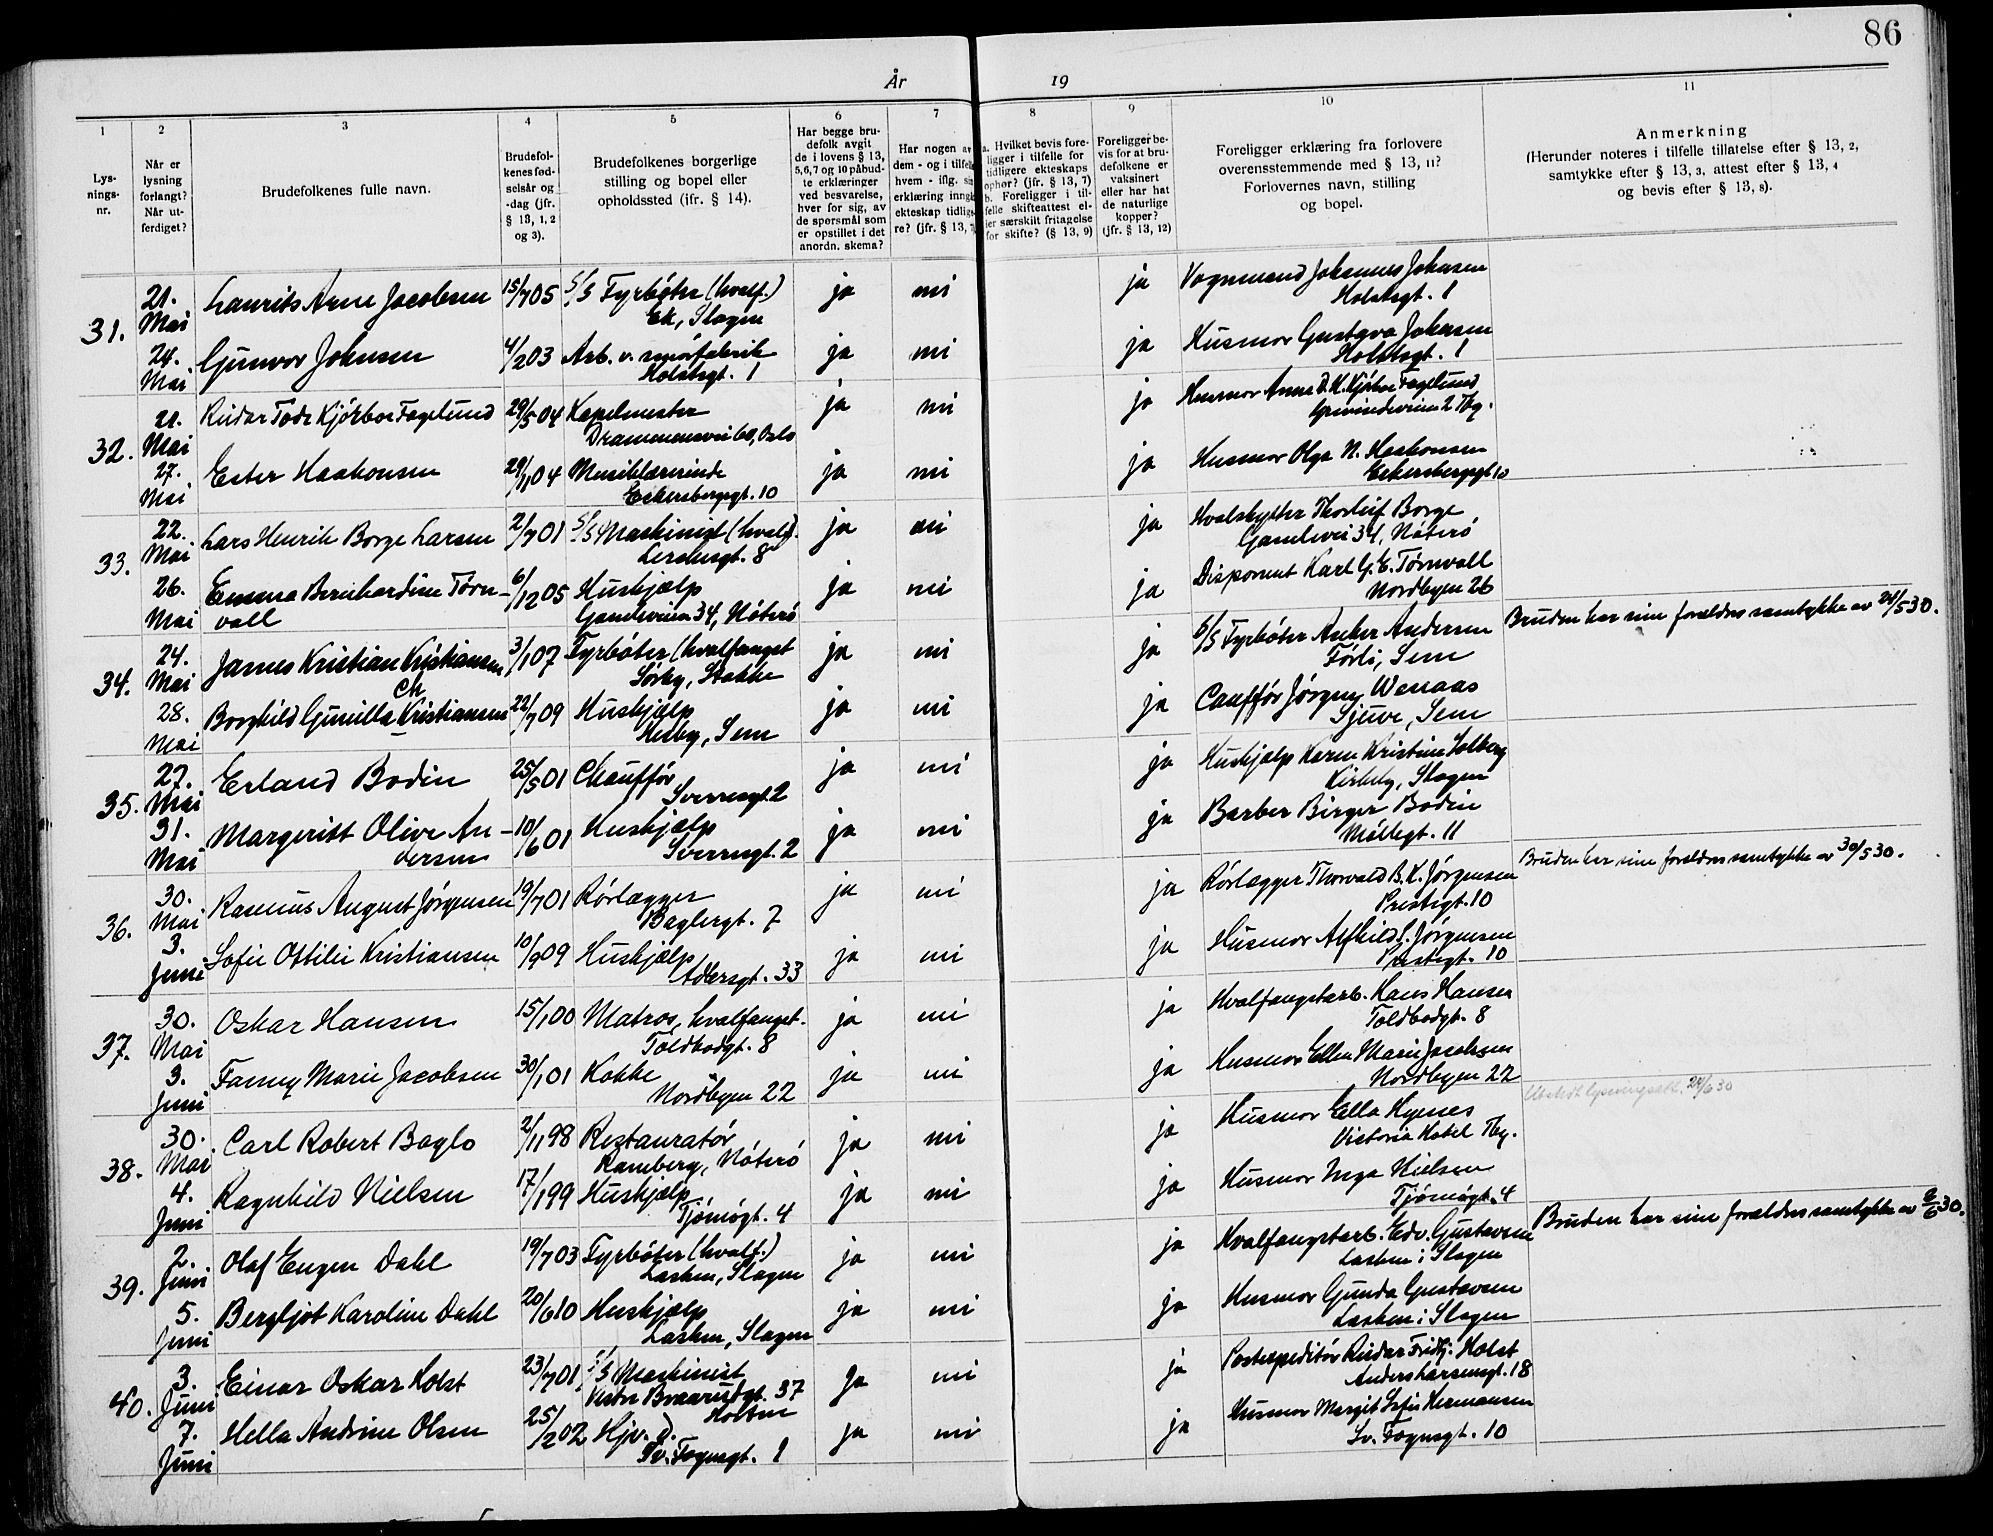 86
År 19
1
2
3
4
5
6
7
8
9
10
11
Lys-
nings-
nr.
Når er
lysning
forlangt?
Når ut-
ferdiget?
Brudefolkenes fulle navn.
Brudefol-
kenes fød-
selsår og
-dag (jfr.
§ 13, 1, 2
og 3).
Brudefolkenes borgerlige
stilling og bopel eller
opholdssted (jfr. § 14).
Har begge bru-
defolk avgit
de i lovens § 13,
5,6,7 og 10 påbud-
te erklæringer
ved besvarelse,
hver for sig, av
de spørsmål som
er opstillet i det
anordn. skema?
Har nogen av
dem - og i tilfelle
hvem - iflg. sin
erklæring inngått
ekteskap tidlige-
re? (jfr. § 13, 7
a. Hvilket bevis fore-
ligger i tilfelle for
tidligere ekteskaps
ophør? (jfr. § 13, 7)
b. Foreligger i til-
felle skifteattest el-
ler særskilt fritagelse
for skifte? (§ 13, 9)
Foreligger be-
vis for at bru-
defolkene er
vaksinert
eller har hat
de naturlige
kopper?
(jfr. § 13, 12)
Foreligger erklæring fra forlovere
overensstemmende med § 13, 11?
Forlovernes navn, stilling
og bopel.
Anmerkning
(Herunder noteres i tilfelle tillatelse efter § 13, 2,
samtykke efter § 13, 3, attest efter § 13, 4
og bevis efter § 13, 8).
31. 21. Mai Laurits Arne Jacobsen 15/7 05 S/S Fyrbøter (hvalf.) ja nei ja Vognmand Johannes Johnsen
Ek, Slagen Holstsgt. 1
24. Mai Gunvor Johnsen 4/2 03 Arb. v. smørfabrik ja nei ja Husmor Gustava Johnsen
Holstsgt. 1 Holstsgt. 1
32. 21. Mai Reidar Tode Kjörboe Fagelund 29/5 04 Kapelmester ja nei ja Husmor Anna D. K. Kjörboe Fagelund
Drammensvei 60, Oslo Grevindeveien 2 Tbg.
27. Mai Ester Haakonsen 29/11 04 Musiklærerinde ja nei ja Husmor Olga N. Haakonsen
Eckersbergsgt. 10 Eckersbergsgt 10
33. 22. Mai Lars Henrik Borge Larsen 2/7 01 S/S Maskinist (hvalf). ja nei ja Hvalskytter Thorleif Borge
Lerchesgt. 8 Gamlevei 34, Nøterø
26. Mai Emma Bernhardine Törn- 6/12 05 Hushjælp ja nei ja Disponent Karl G. E. Törnvall
vall Gamleveien 34, Nøterø Nordbyen 26
34. 24. Mai James Kristian Kristiansen 3/1 07 Fyrbøter (hvalfanget ja nei ja S/S Fyrbøter Anker Andersen Bruden har sine forældres samtykke av 24/5 30.
Sörby, Stokke Förli, Sem
Ch
28. Mai Borghild Gunilla Kristiansen 22/7 09 Hushjælp ja nei ja Cauffør Jörgen Wenaas
Hesby, Sem Gjuve, Sem
35. 27. Mai Erland Bodin 25/5 01 Chauffør ja nei ja Hushjælp Karen Kristine Solberg
Sverresgt. 2 Kirkeby, Slagen
31. Mai Margeritt Olive An- 10/6 01 Hushjælp ja nei ja Barber Birger Bodin
dersen Sverresgt. 2 Möllegt. 11
36. 30. Mai Rasmus August Jörgensen 19/7 01 Rørlægger ja nei ja Rørlægger Thorvald B. K. Jörgensen Bruden har sine forældres samtykke av 30/5 30.
Baglergt. 7 Prestegt. 10
3. Juni Sofie Ottilie Kristiansen 10/9 09 Hushjælp ja nei ja Husmor Alfhild Jörgensen
Adlersgt. 33 Prestegt. 10
37. 30. Mai Oskar Hansen 15/1 00 Matros, hvalfanget. ja nei ja Hvalfangstarb. Hans Hansen
Toldbodgt. 8 Toldbodgt. 8
3. Juni Fanny Marie Jacobsen 30/1 01 Kokke ja nei ja Husmor Ellen Marie Jacobsen
Nordbyen 22 Nordbyen 22
38. 30. Mai Carl Robert Baglo 2/11 98 Restauratør ja nei ja Husmor Ella Hynes Utstedt lysningsatt. 24/6 30
Ramberg, Nøterø Victoria Hotel Tbg.
4. Juni Ragnhild Nielsen 17/1 99 Hushjælp ja nei ja Husmor Inga Nielsen
Tjømøgt. 4 Tjømøgt. 4
39. 2. Juni Olaf Eugen Dahl 19/7 03 Fyrbøter (hvalf.) ja nei ja Hvalfangstarb. Edv. Gustavsen Bruden har sine forældres samtykke av 2/6 30.
Lasken, Slagen Lasken i Slagen
5. Juni Bergljot Karoline Dahl 20/6 10 Hushjælp ja nei ja Husmor Gunda Gustavsen
Lasken, Slagen Lasken i Slagen
40. 3. Juni Einar Oskar Holst 23/7 01 S/S Maskinist ja nei ja Postexpeditør Reidar Fridtj. Holst
37 Horten Anders Larsensgt. 18
7. Juni Hella Andrine Olsen 25/2 02 Hjv. D. ja nei ja Husmor Margit Sofie Hermansen
Sv. Foynsgt. 1 Sv. Foynsgt. 10